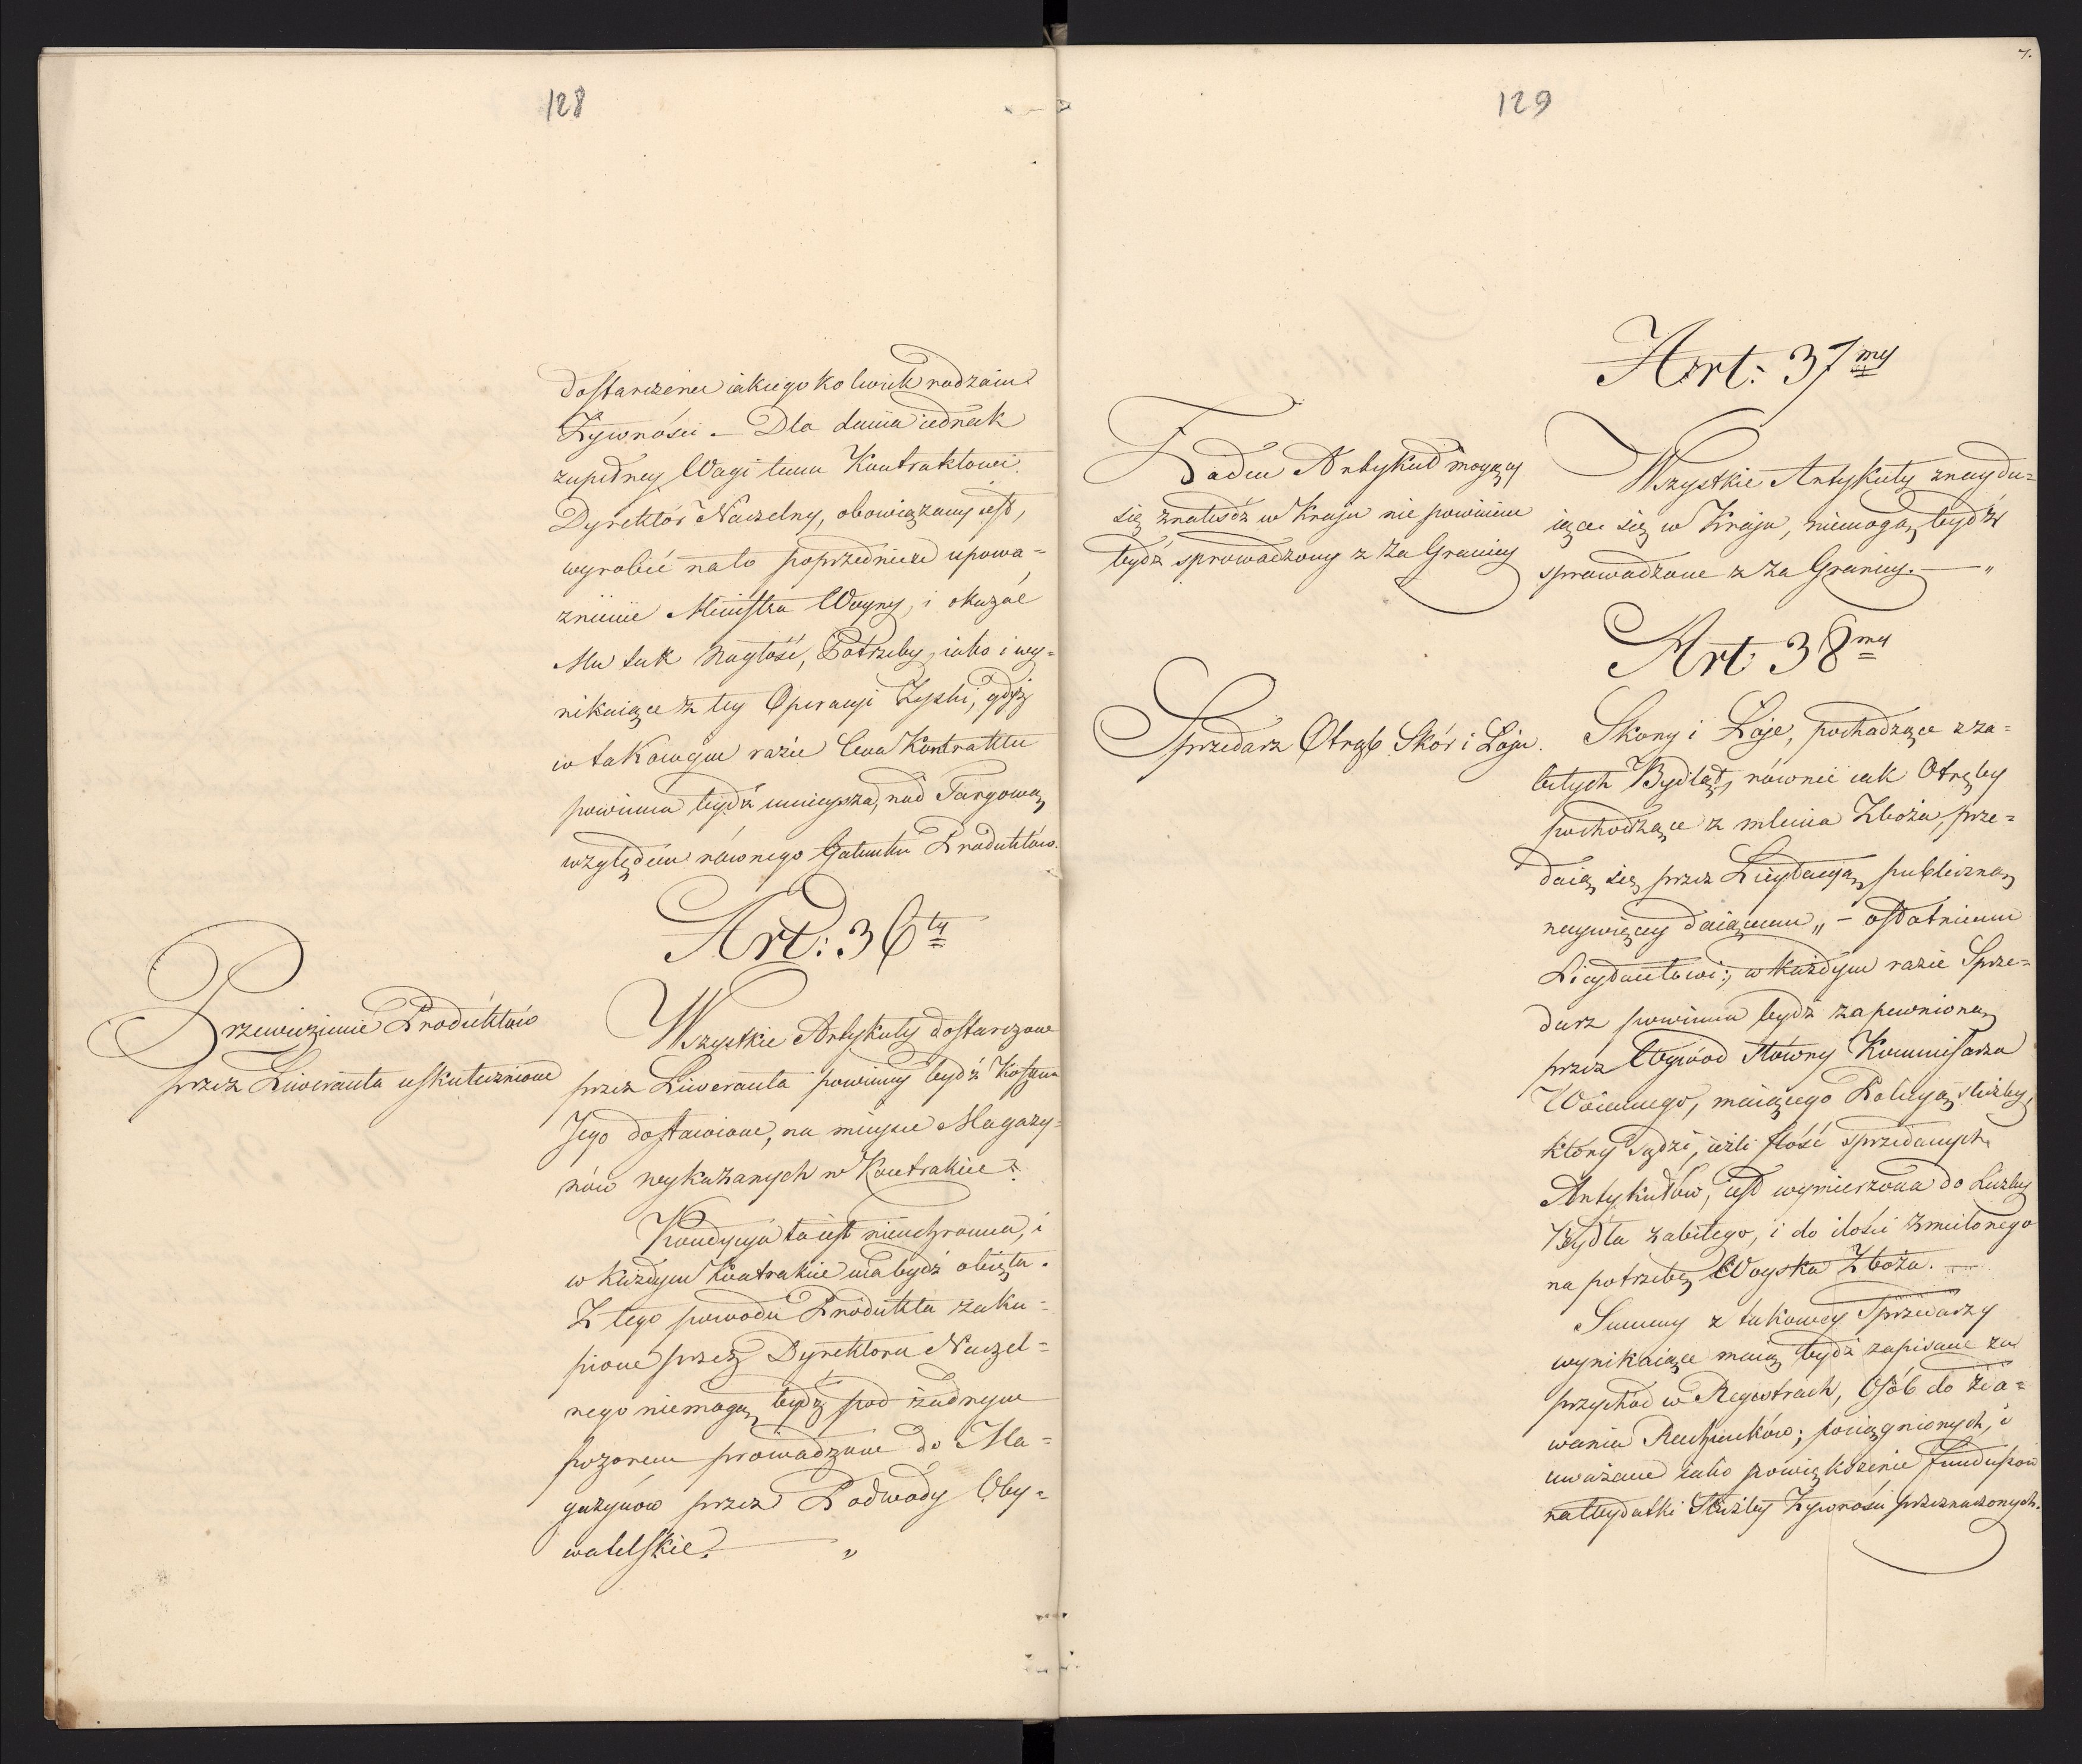 128
dostarczenia iakiegokolwiek rodzaiu
Żywności. — Dla dania iednak
zupełney Wagi temu Kontraktowi
Dyrektór Naczelny, obowiązany iest,
wyrobić na to poprzednicze upowa=
żnienie Ministra Woyny, i okazać
Mu tak Nagłość, Potrzeby, iako i wy=
nikaiące z tey Operacyi Zyski, gdyż
w takowym razie Cena Kontraktu
powinna bydź mnieysza, nad Targową,
względem równego Gatunku Produktów.
Art: 36ty
Przewiezienie Produktów
przez Liweranta uskutecznione
Wszystkie Artykuły dostarczone
przez Liweranta powinny bydź Kosztem
Jego dostawione, na mieysce Magazy=
nów wykazanych w Kontrakcie.
Kondycyja ta iest nieuchronna, i
w każdym Kontrakcie ma bydź obięta.
Z tego powodu Produkta zaku=
pione przez Dyrektora Naczel=
nego niemogą bydź pod żadnym
pozorem prowadzone do Ma=
gazynów przez Podwody Oby=
watelskie. — "
7.
129
Art: 37my
Żaden Artykuł mogący
się znaleśdź w Kraju nie powinien
bydź sprowadzony z za Granicy
Wszystkie Artykuły znaydu=
iące się w Kraju, niemogą bydź
sprowadzone z za Granicy. — "
Art: 38my
Sprzedarz Otrąb Skór i Łoju.
Skóry i Łoje, pochodzące z za=
bitych Bydląt, równie iak Otręby
pochodzące z mlenia Zboża, prze=
daią się przez Licytacyją publiczną
naywięcey daiącemu „ — ostatniemu
Licytantowi; w każdym razie Sprze=
darz powinna bydź zapewnioną
przez Wywód Słowny Kommissarza
Woiennego, maiącego Policyą służby,
który sądzi, ieżli Ilość sprzedanych
Artykułów, iest wymierzona do Liczby
Bydła zabitego, i do ilości zmielonego
na potrzebę Woyska Zboża. —
Summy z takowey Sprzedarzy
wynikaiące maią bydź zapisane za
przychód w Regiestrach, Osób do zda=
wania Rachunków; pociągnionych, i
uważane iako powiększenie funduszów
na Wydatki Służby Żywności przeznaczonych.